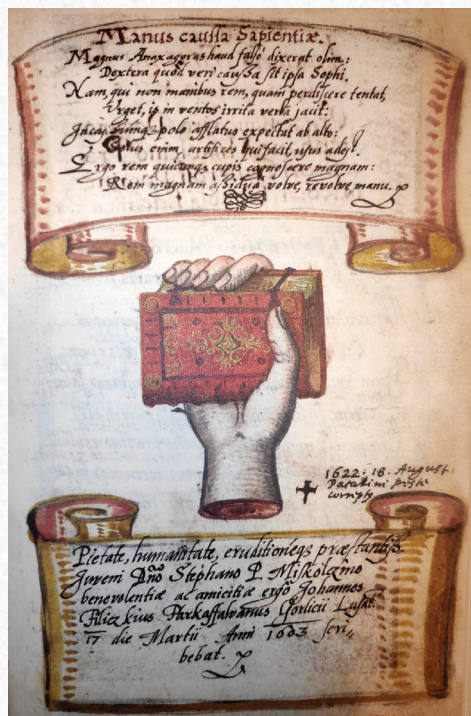 Manus caussa Sapientiæ.
Magnus Anaxagoras haud falsò dixerat olim:
Dextera quòd veri caussa sit ipsa Sophi.
Nam, qui non manibus rem, quam perdiscere tentat,
Urget, is in ventos irrita verba jacit:
polo afflatus expectat ab alto:
enim artifices qui facit, usus adest.
Ergo rem quicunq cupis cognoscere magnam:
Rem magnam assiduâ volve, revolve manu.
1622: 18. August:
Patakini peste
Pietate, humanitate, eruditioneq præstantiss.
Juveni Dño Stephano P. Miskolzino
benevolentiæ ac amicitiæ ergò Johannes
Filiczkius Farkaffalvanus Gorlicii Lusat.
17 die Martii Anni 1603 scri,,
bebat.